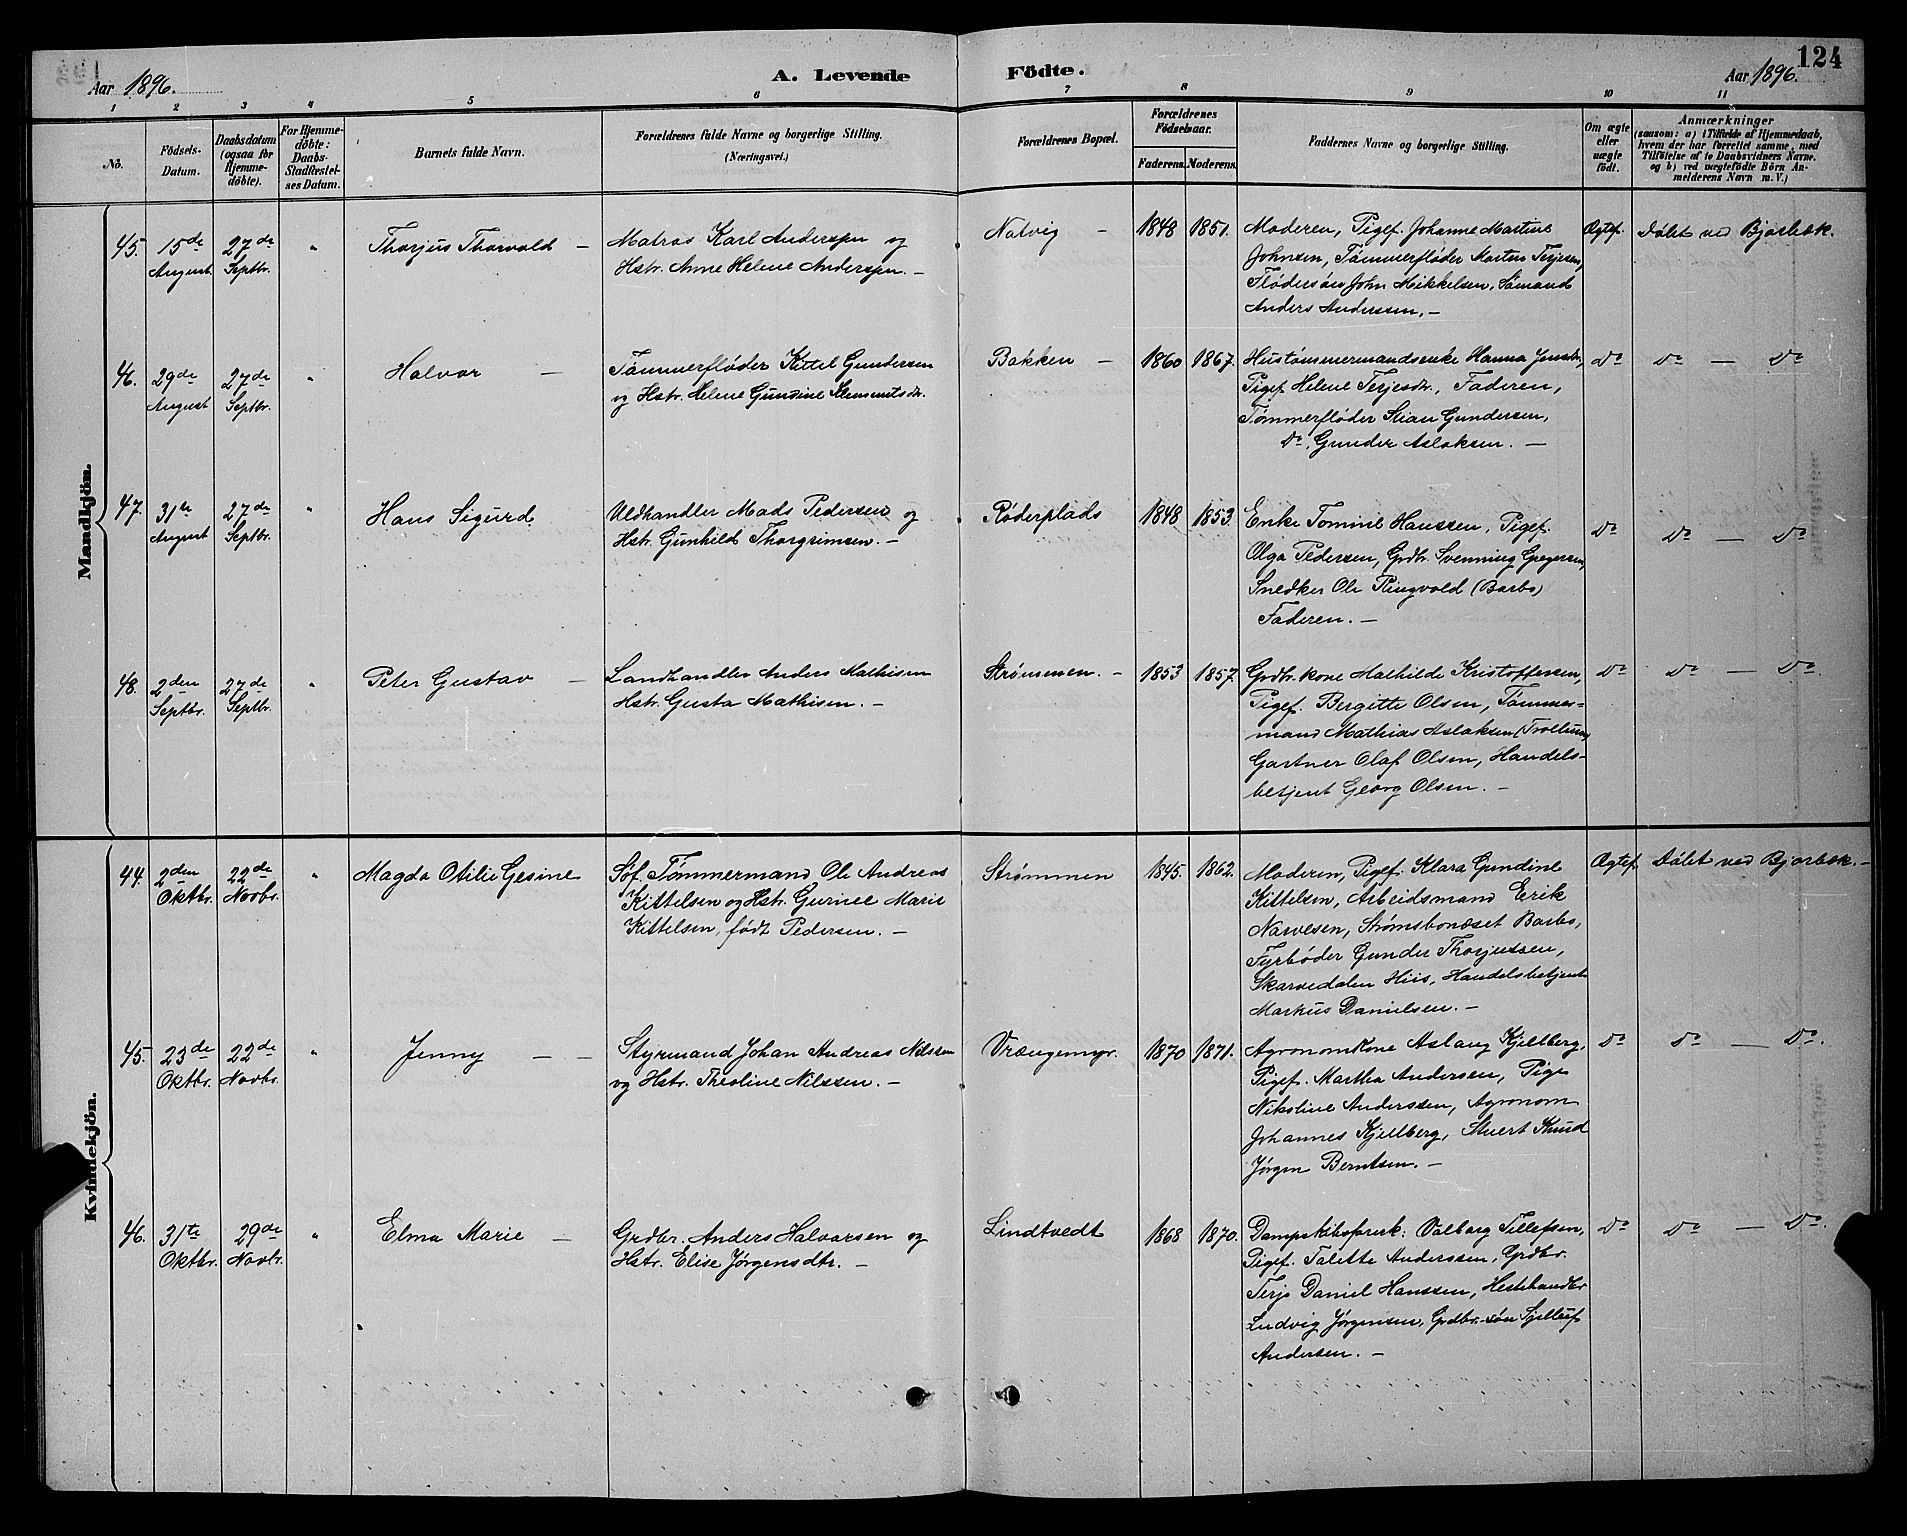 124
Aar 1896.
A. Levende Födte.
Aar 1896.
1 2 3 4 5 6 7 8 9 10 11
No.
Födsels-
Datum.
Daabsdatum
(ogsaa for
Hjemme-
döbte).
For Hjemme-
döbte:
Daabs-
Stadfæstel-
ses Datum.
Barnets fulde Navn.
Forældrenes fulde Navne og borgerlige Stilling.
(Næringsvei.)
Forældrenes Bopæl.
Forældrenes
Födselsaar.
Faderens. Moderens.
Faddernes Navne og borgerlige Stilling.
Om ægte
eller
uægte
födt.
Anmærkninger
(saasom: a) i Tilfælde af Hjemmedaab,
hvem der har forrettet samme, med
Tilföielse af to Daabsvidners Navne,
og b) ved uægtefödte Börn An-
melderens Navn m. V.)
Mandkjön.
45. 15de August 27de Septbr. "
Thorjus Thorvald –
Matros Karl Anderssen og
Hstr. Anne Helene Anderssen. –
Natvig –
1848 1851.
Moderen, Pigef. Johanne Martine
Johnsen, Tømmerfløder Martin Terjesen,
Flødersøn John Mikkelsen, Sømand
Anders Anderssen. –
Ægtef.
Døbt ved Bjorbæk.
46. 29de August 27de Septbr. "
Halvor –
Tømmerfløder Kittel Gundersen
og Hstr. Helene Gundine Klemmetsdr.
Bakken –
1860 1867.
Hustømmermandsenke Hanna Jensdr.,
Pigef. Helene Terjesdr., Faderen,
Tømmerfløder Stian Gundersen,
Do. Gunder Aslaksen. –
Do
Do – Do
47. 31te August 27de Septbr. "
Hans Sigurd
Vedhandler Mads Pedersen og
Hstr. Gunhild Thorgrimsen. –
Røderplads
1848 1853.
Enke Tomine Hanssen, Pigef.
Olga Pedersen, Grdbr. Svenning Gregersen,
Snedker Ole Ringvold (Barbo)
Faderen. –
Do
Do – Do
48. 2den Septbr. 27de Septbr. "
Peter Gustav –
Landhandler Anders Mathisen
Hstr. Gusta Mathisen. –
Strømmen. –
1853 1857
Grdbr.kone Mathilde Kristoffersen,
Pigef. Bergitte Olsen, Tømmer-
mand Mathias Aslaksen
Gartner Olaf Olsen, Handels-
betjent Georg Olsen. –
Do
Do – Do
Kvindekjön.
44. 2den Oktbr. 22de Novbr. "
Magda Otilie Gesine
Søf. Tømmermand Ole Andreas
Kittelsen og Hstr. Gurine Marie
Kittelsen, født Pedersen. –
Strømmen
1845. 1862.
Moderen, Pigef. Klara Gundine
Kittelsen, Arbeidsmand Erik
Narvesen, Strømsbonæset Barbo,
Fyrbøder Gunder Thorjussen,
Skarvedalen Hiis, Handelsbetjent
Markus Danielsen. –
Ægtef.
Døbt ved Bjorbæk. –
45. 23de Oktbr. 22de Novbr. "
Jenny – –
Styrmand Johan Andreas Nilssen
og Hstr. Theoline Nilssen. –
Vrængemyr.
1870 1871.
Agronomkone Aslaug Kjellberg,
Pigef. Martha Andersen, Pige
Nikoline Anderssen, Agronom
Johannes Kjellberg, Stuert Knud
Jørgen Berntsen. –
Do
Do – Do.
46. 31te Oktbr. 29de Novbr. "
Elma Marie –
Grdbr. Anders Halvorsen og
Hstr. Elise Jørgensdtr. –
Lindtvedt
1868 1870.
Valborg Tellefsen,
Pigef. Talette Anderssen, Grdbr.
Terje Daniel Hanssen, Hestehandler
Ludvig Jørgensen, Grdbr.-søn
Andersen. –
Do
Do – Do.